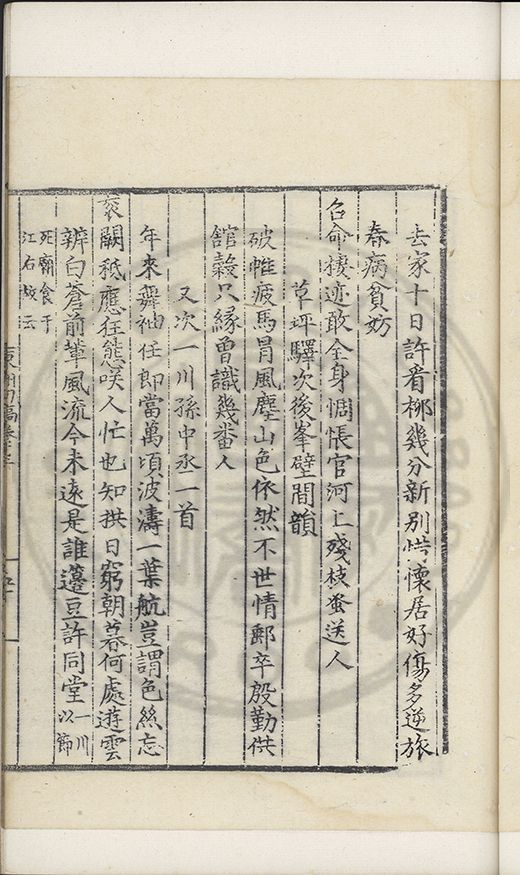 去家十日許看柳幾分新別恨懷居好傷多逆旅
春病貧妨
召命棲迹敢全身惆悵官河上殘枝蚤送人
草坪驛次後峯壁間韻
破帷疲馬冒風塵山色依然不世情郵卒殷勤供
舘穀只緣曾識幾番人
又次一川孫中丞一首
年來舞袖任郎當萬頃波濤一葉航豈謂色絲忘
袞闕秪應狂態咲人忙也知拱日窮朝暮何處遊雲
辨白蒼前輩風流今未遠是誰籩豆許同堂一川以節
死廟食于江右故云